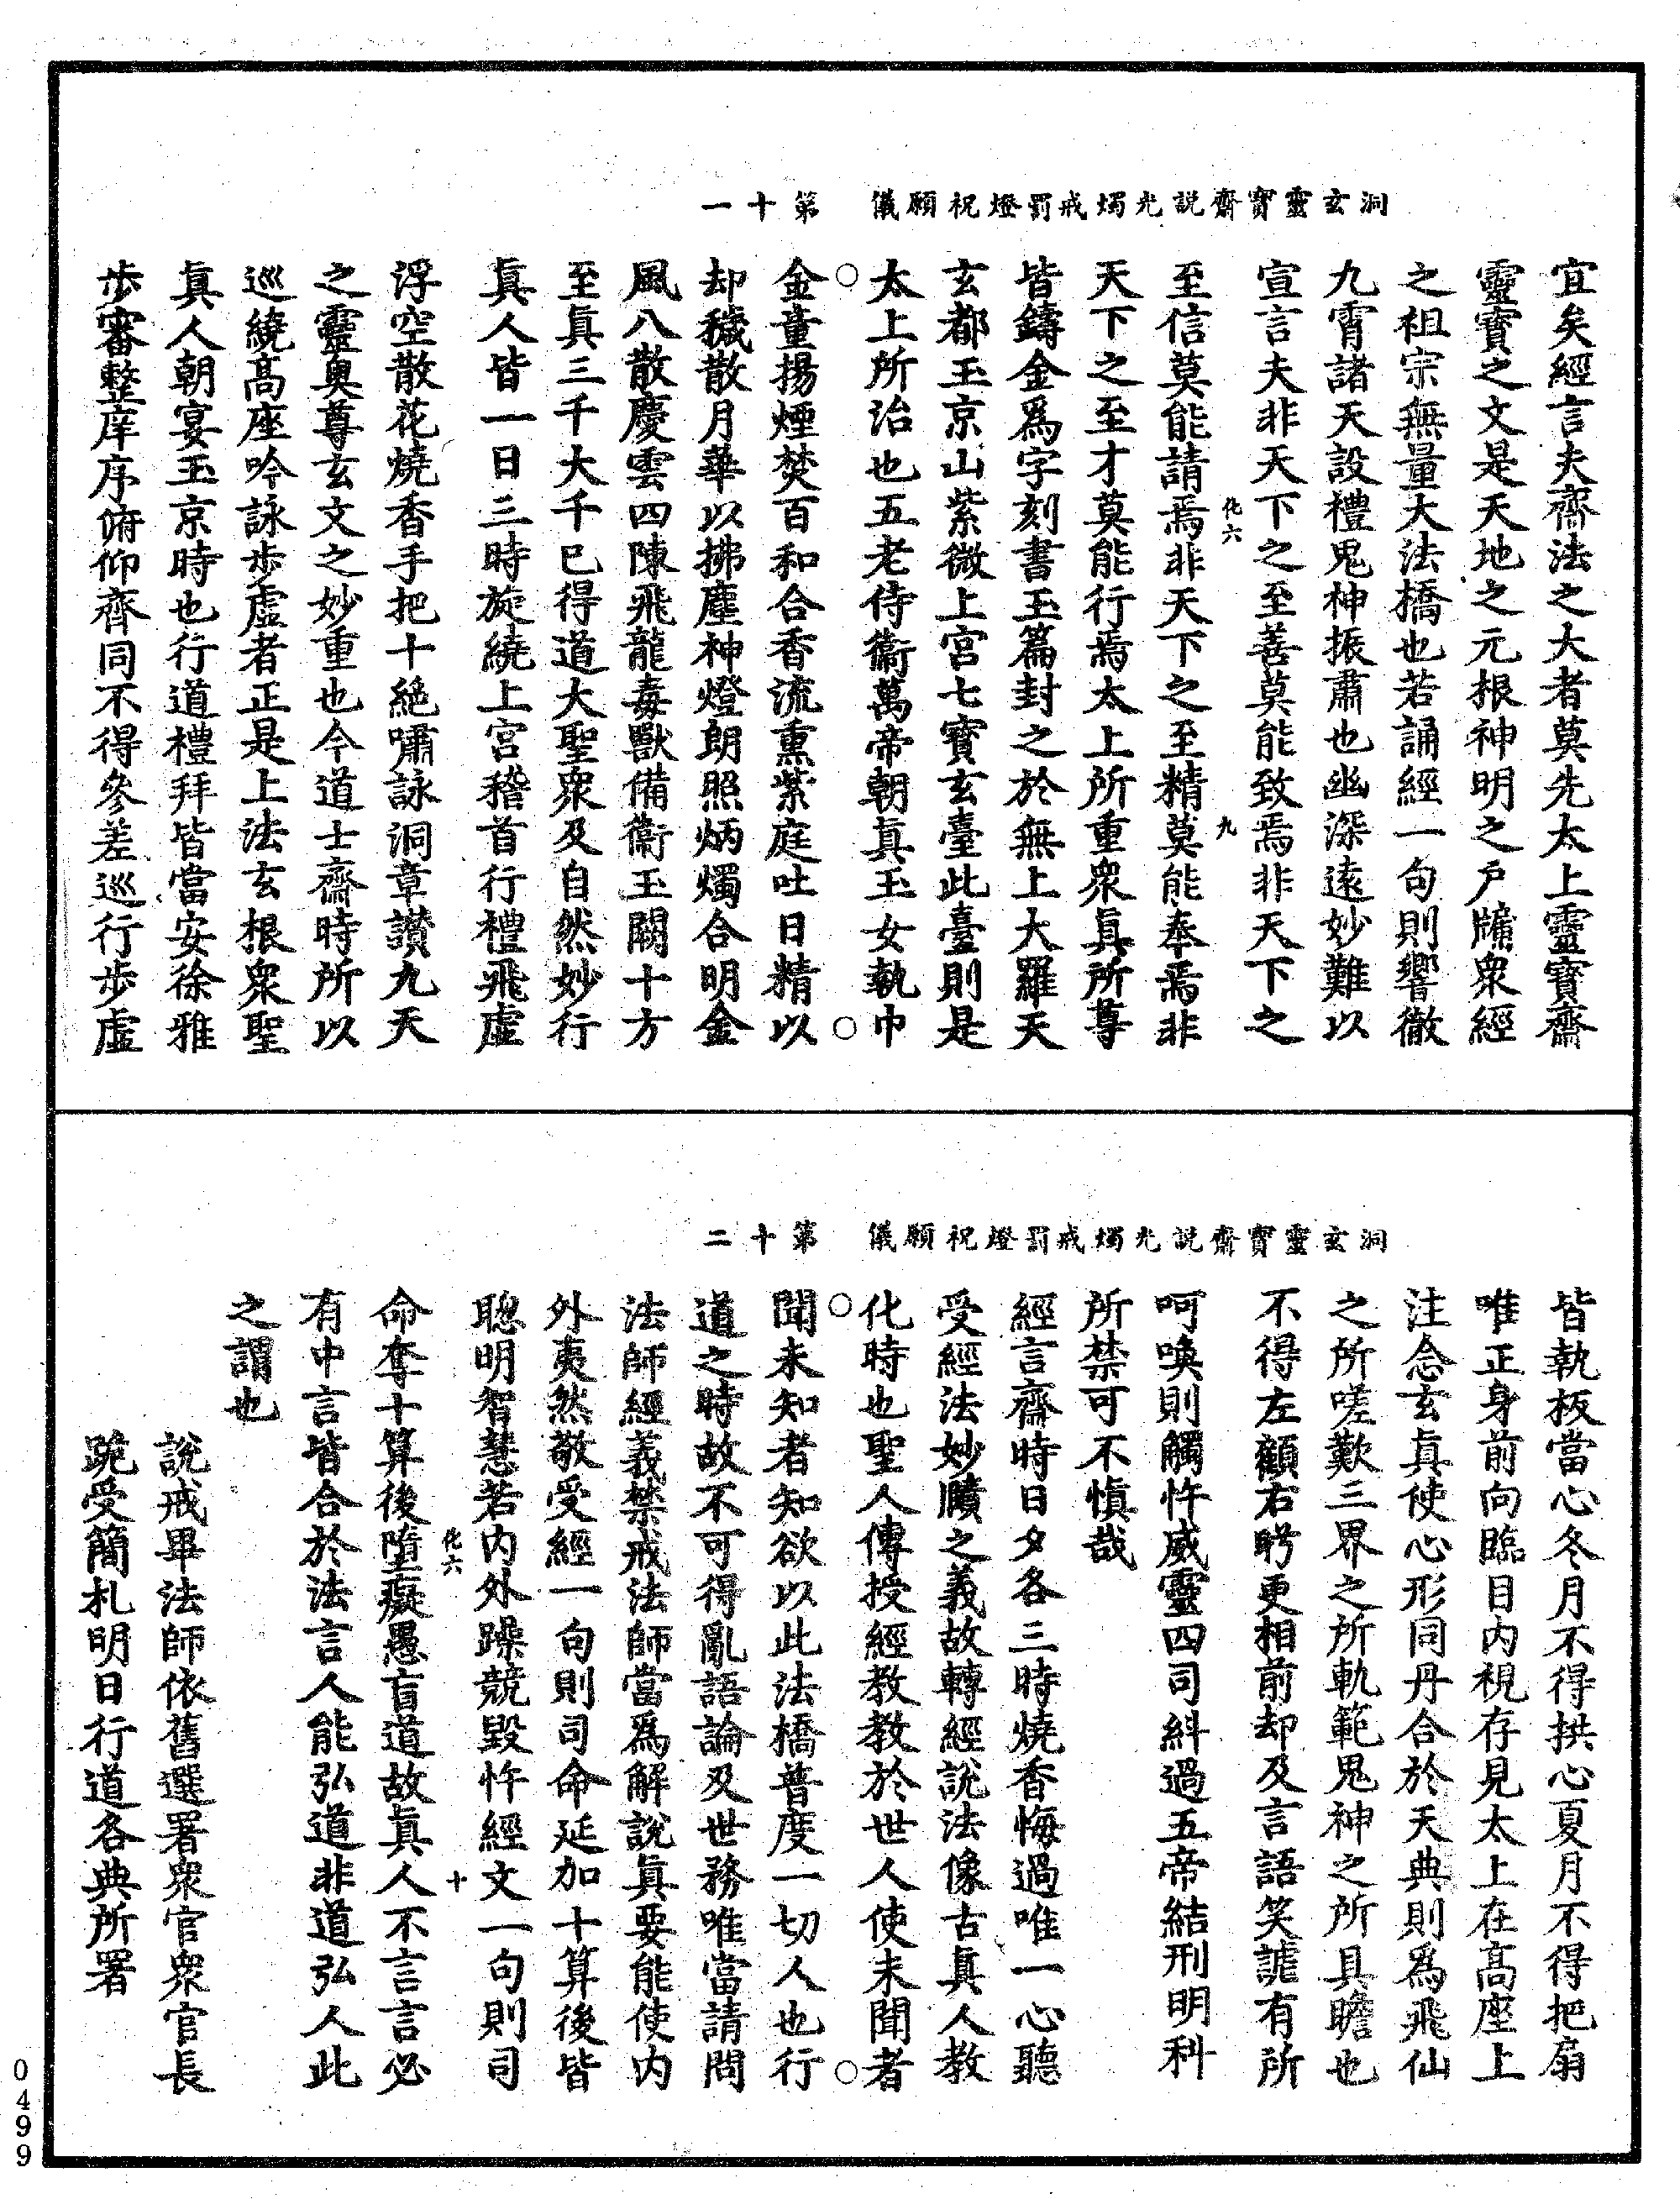 洞玄靈寶齋說光燭戒罰燈祝願儀　第十一
宜矣經言夫齋法之大者莫先太上靈寶齋
靈寶之文是天地之元根神明之戶牖衆經
之祖宗無量大法橋也若誦經一句則響徹
九霄諸天設禮鬼神振肅也幽深遠妙難以
宣言夫非天下之至善莫能致焉非天下之
化六　九
至信莫能請焉非天下之至精莫能奉焉非
天下之至才莫能行焉太上所重衆眞所尊
皆鑄金爲字刻書玉篇封之於無上大羅天
玄都玉京山紫微上宮七寶玄臺此臺則是
太上所治也五老侍衞萬帝朝眞玉女執巾
金童揚煙焚百和合香流熏紫庭吐日精以
却穢散月華以拂塵神燈朗照炳燭合明金
風八散慶雲四陳飛龍毒獸備衞玉闕十方
至眞三千大千已得道大聖衆及自然妙行
眞人皆一日三時旋繞上宮稽首行禮飛虛
浮空散花燒香手把十絕嘯詠洞章讚九天
之靈奧尊玄文之妙重也今道士齋時所以
巡繞高座吟詠步虛者正是上法玄根衆聖
眞人朝宴玉京時也行道禮拜皆當安徐雅
步審整庠序俯仰齊同不得參差巡行步虛
洞玄靈寶齋說光燭戒罰燈祝願儀　第十二
皆執板當心冬月不得拱心夏月不得把扇
唯正身前向臨目內視存見太上在高座上
注念玄眞使心形同丹合於天典則爲飛仙
之所嗟歎三界之所軌範鬼神之所具瞻也
不得左顧右眄更相前却及言語笑謔有所
呵喚則觸忤威靈四司糾過五帝結刑明科
所禁可不慎哉
經言齋時日夕各三時燒香悔過唯一心聽
受經法妙賾之義故轉經說法像古眞人教
化時也聖人傳授經教教於世人使未聞者
聞未知者知欲以此法橋普度一切人也行
道之時故不可得亂語論及世務唯當請問
法師經義禁戒法師當爲解說眞要能使內
外夷然敬受經一句則司命延加十算後皆
聰明智慧若內外躁競毀忤經文一句則司
化六　十
命奪十算後墮癡愚盲道故眞人不言言必
有中言皆合於法言人能弘道非道弘人此
之謂也
說戒畢法師依舊選署衆官衆官長
跪受簡札明日行道各典所署
0499